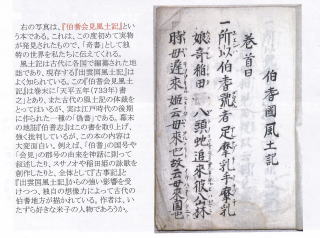 右の写真は、『伯耆会見風土記』とい
う本である。これは、この度初めて実物
が発見されたもので、「奇書」として独
特の世界を私たちに伝えてくれる。
風土記は古代に各国で編纂された地
誌であり、現存する『出雲国風土記』は
よく知られている。この『伯耆会見風土
記』は巻末に「天平五年(733年)書
之」とあり、また古代の風土記の体裁を
とってはいるが、実は江戸時代の後期
に作られた一種の「偽書」である。幕末
の地誌『伯耆志』はこの書を取り上げ、
強く批判しているが、この本の内容は
大変面白い。例えば、「伯耆」の国号や
「会見」の郡号の由来を神話に則って
叙述したり、スサノオや稲田姫の詠歌を
創作したりと、全体として『古事記』と
『出雲国風土記』からの強い影響を受
けつつ、独自の想像力によって古代の
伯耆地方が描かれている。作者は、い
たずら好きな米子の人物であろうか。
伯耆國風土記
卷首曰
一所以伯耆號者足摩乳手摩乳
娘稻田 八頭蛇追來彼山林
時母遲來姬云母來也故云母來國也